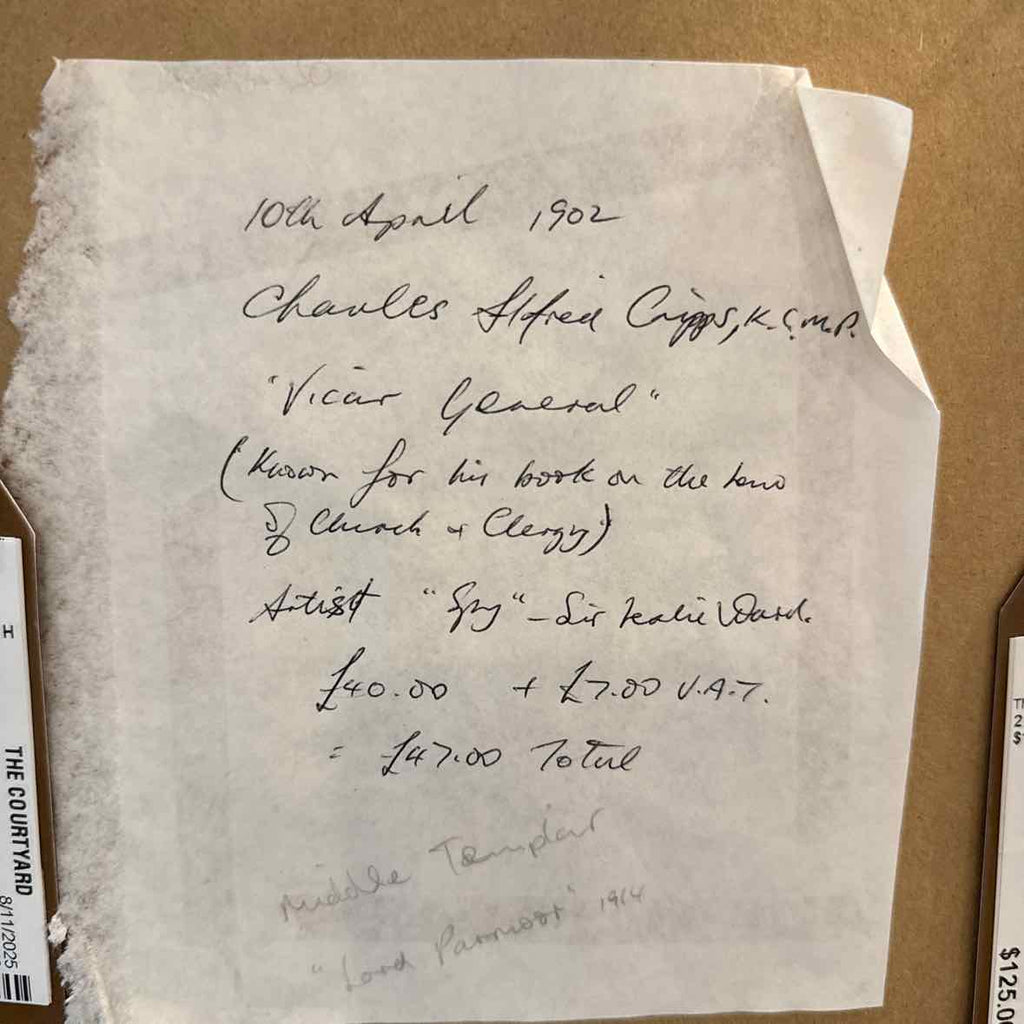 10th April 1902
Charles Alfred Cripps, K.C. M.P.
"Vicar General"
(Known for his book on the laws
of Church & Clergy)
Artist "Spy" – Sir Leslie Ward.
£40.00 + £7.00 V.A.T.
= £47.00 Total
Middle Templar
"Lord Parmoor" 1914
H
THE COURTYARD
8/11/2025
$125.0